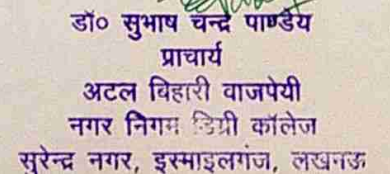 डॉ० सुभाष चन्द्र पाण्डेय
प्राचार्य
अटल बिहारी वाजपेयी
नगर निगम डिग्री कॉलेज
सुरेन्द्र नगर, इस्माइलगंज, लखनऊ